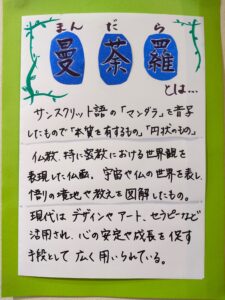 まんだら
曼荼羅
とは…
サンスクリット語の「マンダラ」を音字
したもので「本質を有するもの」「円状のもの」
仏教、特に密教における世界観を
表現した仏画。宇宙や仏の世界を表し、
悟りの境地や教えを図解したもの。
現代はデザインやアート、セラピーなど
活用され、心の安定や成長を促す
手段として広く用いられている。